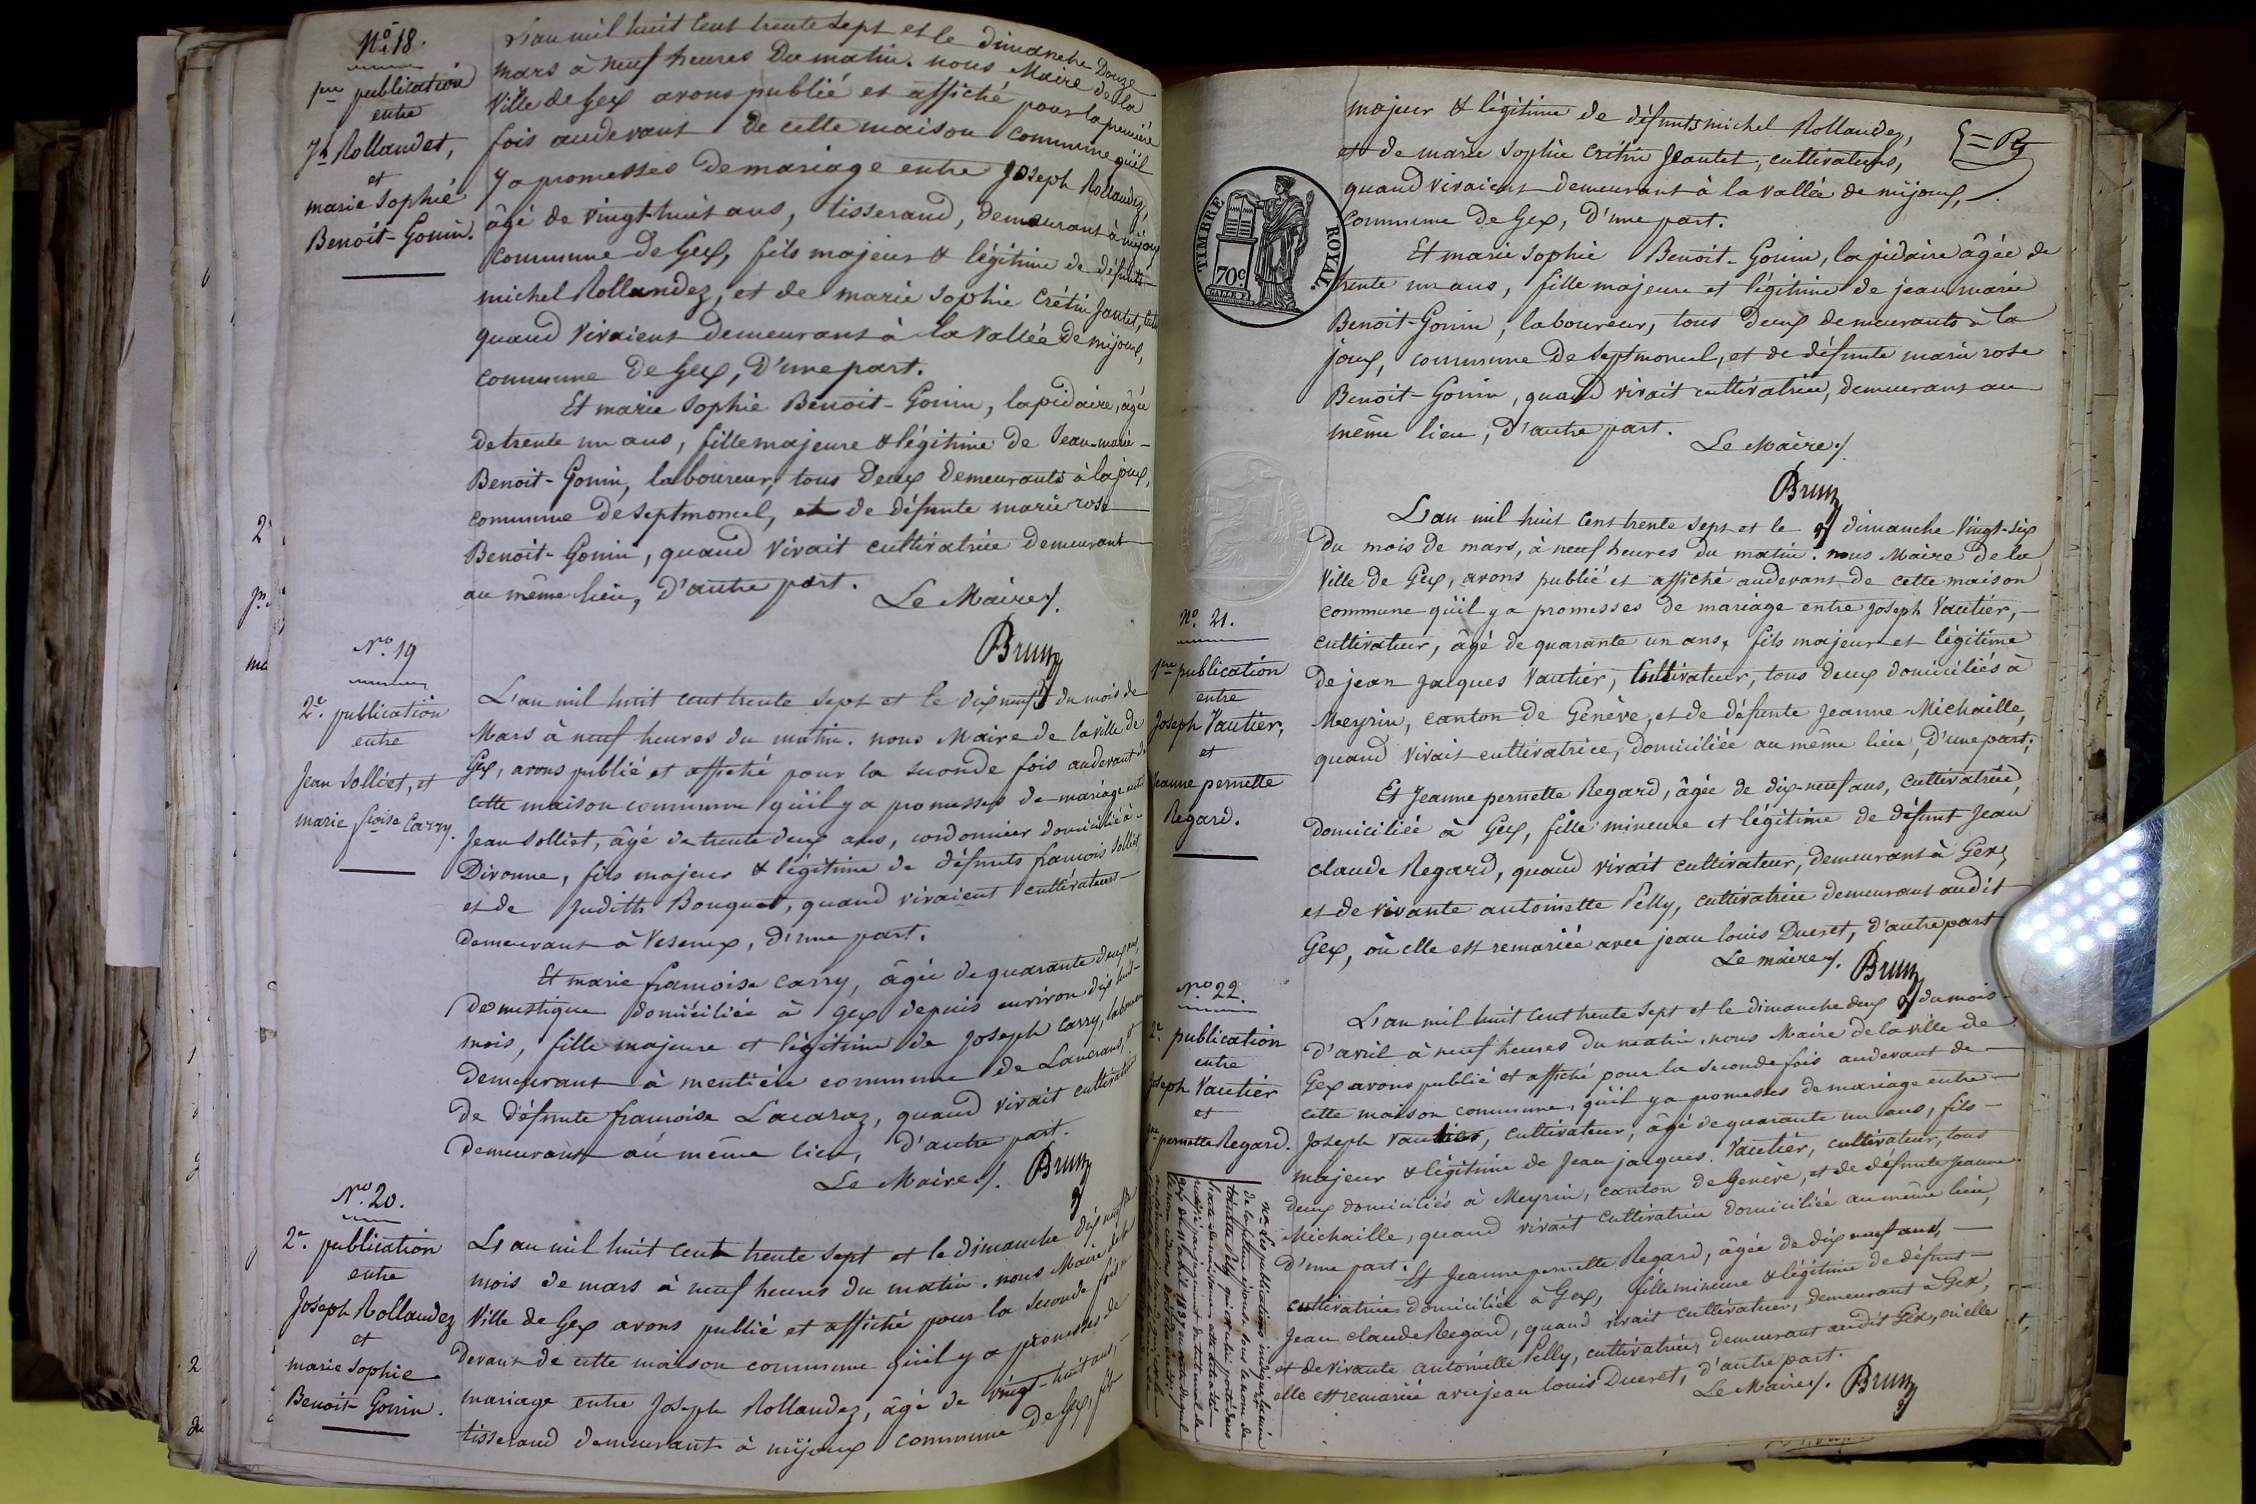 N.° 18.
1ère publication
entre
Jh Rollandet,
et
marie Sophie
Benoit-Gonin.
L'an mil huit Cent trente sept et le dimanche Douze
mars à neuf heures du matin. nous Maire de la
Ville de Gex avons publié et affiché pour la première
fois audevant de cette maison commune qu'il
y a promesses de mariage entre Joseph Rollandez,
âgé de vingt-huit ans, tisserand, demeurant à mijoux
commune de Gex, fils majeur & légitime de défunts
michel Rollandez, et de marie Sophie Crétin Jantet,
quand vivaient demeurant à la vallée de mijoux,
commune de Gex, d'une part.
Et marie Sophie Benoit-Gonin, lapidaire, âgée
de trente un ans, fille majeure & légitime de Jean-marie
Benoit-Gonin, laboureur, tous deux demeurants à la joux,
commune de septmoncel, et de défunte marie rose
Benoit-Gonin, quand vivait cultivatrice demeurant
au même lieu, d'autre part.
Le Maire /.
Brun
N.° 19
2e. publication
entre
Jean Solliet, et
marie fçoise Carry.
L'an mil huit cent trente sept et le dix neuf du mois de
Mars à neuf heures du matin. nous Maire de la ville de
Gex, avons publié et affiché pour la seconde fois audevant de
cette maison commune qu'il y a promesses de mariage entre
Jean Solliet, âgé de trente deux ans, cordonnier domicilié à
Divonne, fils majeur & légitime de défunts françois Solliet
et de Judith Bouquet, quand vivaient cultivateurs
demeurant à Vesenex, d'une part.
Et marie françoise Carry, âgée de quarante deux ans,
domestique domiciliée à gex depuis environ dix huit
mois, fille majeure et légitime de Joseph Carry, laboureur
demeurant à mentière commune de Lancrans, et
de défunte françoise Lacaraz, quand vivait cultivatrice
demeurant au même lieu, d'autre part.
Le Maire /. Brun
N.° 20.
2e. publication
entre
Joseph Rollandez
et
marie Sophie
Benoit Gonin.
L'an mil huit cent trente sept et le dimanche dix neuf
mois de mars à neuf heures du matin. nous Maire de la
Ville de Gex avons publié et affiché pour la seconde fois
devant de cette maison commune qu'il y a promesses de
mariage entre Joseph Rollandez, âgé de vingt-huit ans,
tisserand demeurant à mijoux commune de Gex, fils
majeur & légitime de défunts michel Rollandez,
et de marie Sophie Crétin Jeantet, cultivateurs,
quand vivaient demeurant à la vallée de mijoux,
commune de Gex, d'une part.
TIMBRE ROYAL.
70c.
Et marie Sophie Benoit-Gonin, lapidaire âgée de
trente un ans, fille majeure et légitime de jean marie
Benoit-Gonin, laboureur, tous deux demeurants à la
joux, commune de Septmoncel, et de défunte marie rose
Benoit-Gonin, quand vivait cultivatrice, demeurant au
même lieu, d'autre part.
Le Maire /.
Brun
N.° 21.
1ère publication
entre
Joseph Vautier,
et
Jeanne pernette
Regard.
L'an mil huit Cent trente sept et le dimanche Vingt-six
du mois de mars, à neuf heures du matin. nous Maire de la
Ville de Gex, avons publié et affiché audevant de cette maison
commune qu'il y a promesses de mariage entre Joseph Vautier,
cultivateur, âgé de quarante un ans, fils majeur et légitime
de jean Jacques Vautier, Cultivateur, tous deux domiciliés à
Meyrin, canton de Genève, et de défunte Jeanne Michaille,
quand vivait cultivatrice, domiciliée au même lieu, d'une part;
Et Jeanne pernette Regard, âgée de dix-neuf ans, cultivatrice,
domiciliée à Gex, fille mineure et légitime de défunt Jean
claude Regard, quand vivait cultivateur, demeurant à Gex,
et de vivante antoinette Pelly, cultivatrice demeurant audit
Gex, où elle est remariée avec jean louis Ducret, d'autre part
Le maire /. Brun
N.° 22.
2e. publication
entre
Joseph Vautier
et
Jne pernette Regard.
L'an mil huit Cent trente sept et le dimanche deux du mois
d'avril à neuf heures du matin. nous Maire de la ville de
Gex avons publié et affiché pour la seconde fois audevant de
cette maison commune, qu'il y a promesses de mariage entre
Joseph Vautier, cultivateur, âgé de quarante un ans, fils
majeur & légitime de Jean jacques Vautier, cultivateur, tous
deux domiciliés à Meyrin, canton de Genève, et de défunte Jeanne
Michaille, quand vivait cultivatrice domiciliée au même lieu,
d'une part. Et Jeanne pernette Regard, âgée de dix neuf ans,
cultivatrice domiciliée à Gex, fille mineure & légitime de défunt
Jean claude Regard, quand vivait cultivateur, demeurant à Gex,
et de vivante antoinette Pelly, cultivatrice, demeurant audit Gex, où elle
elle est remariée avec jean louis Ducret, d'autre part.
Le Maire /. Brun